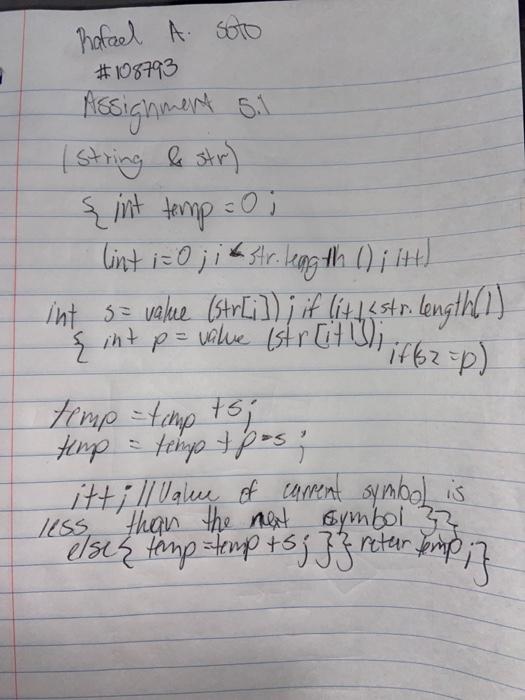 Rafael A. Soto
#108793
Assignment 5.1
(string & str)
{ int temp = 0 ;
(int i=0 ; i < str.length () ; i++)
int s = value (str[i]) ; if (i+1 < str.length())
{ int p = value (str[i+1]);
if(s>=p)
temp = temp +s;
temp = temp + p-s ;
i++ ; // Value of current symbol is
less than the next symbol }}
else{ temp=temp +s; }} retur temp ;}